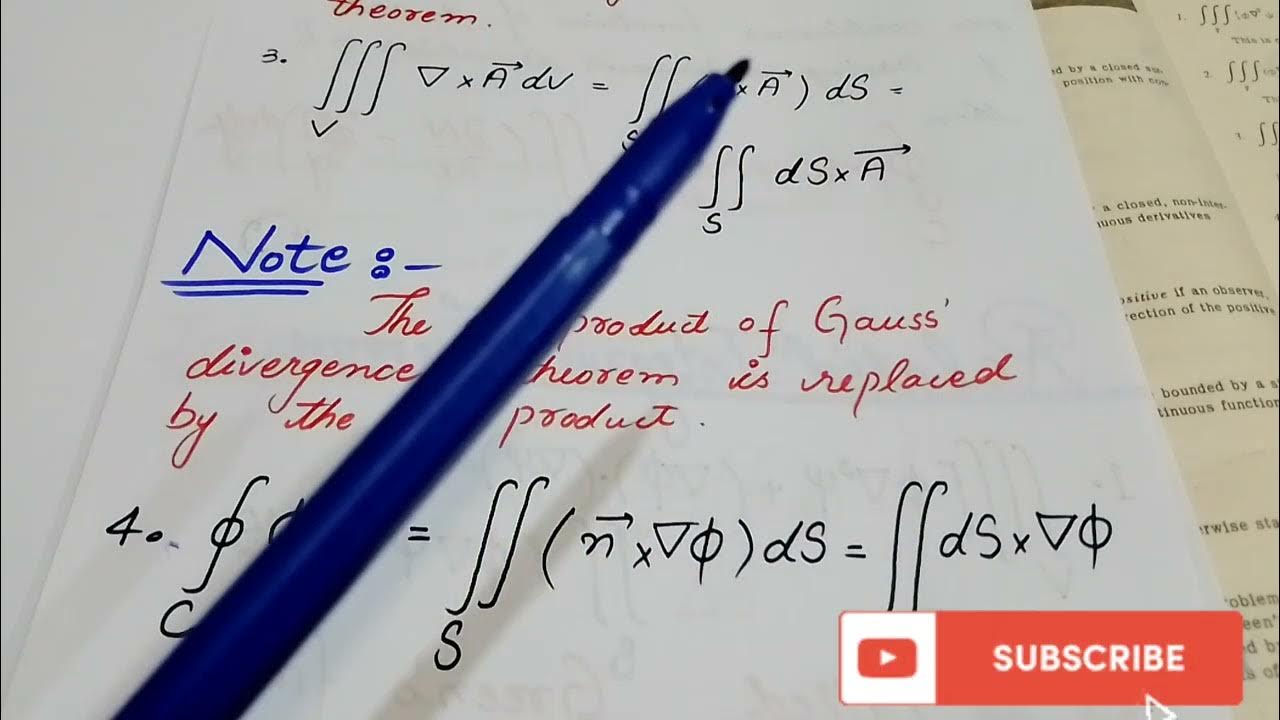 theorem.
3. ∭ ∇ × A⃗ dv = ∬ × A⃗ ) dS =
V S
∬ dS × A⃗
S
Note :-
The product of Gauss'
divergence theorem is replaced
by the product.
4. ∮ ϕ = ∬ ( n⃗ × ∇ϕ ) dS = ∬ dS × ∇ϕ
C S
SUBSCRIBE
1. ∭
This is
ed by a closed sur
position with con
2. ∭
3. ∬
a closed, non-inter-
uous derivatives
ositive if an observer,
rection of the positive
bounded by a s
tinuous function
erwise sta
roblem
een'
d by
s of